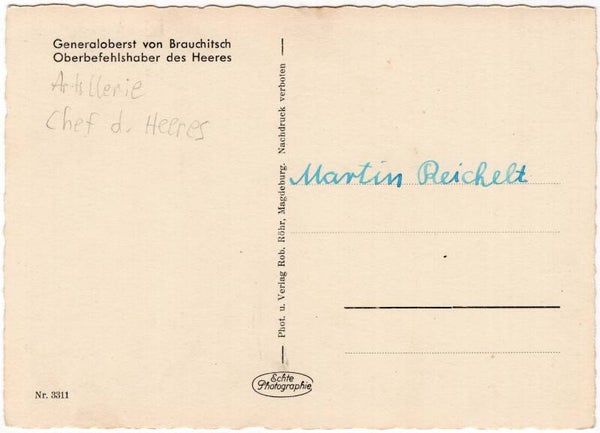 Generaloberst von Brauchitsch
Oberbefehlshaber des Heeres
Artillerie
Chef d. Heeres
Phot. u. Verlag Rob. Röhr, Magdeburg. Nachdruck verboten
Martin Reichelt
Echte
Photographie
Nr. 3311